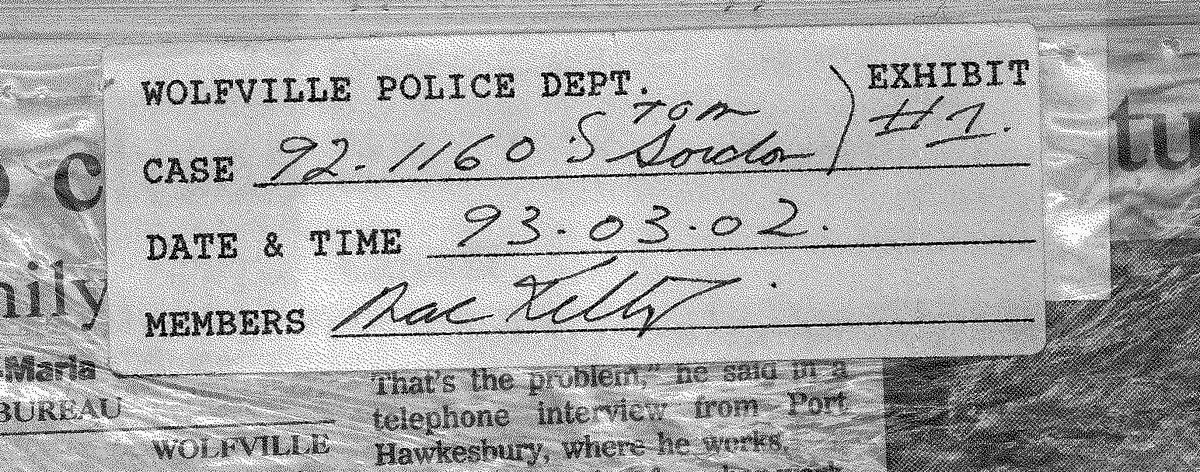 WOLFVILLE POLICE DEPT.
EXHIBIT
#1.
Tom
CASE 92-1160 S Gordon
DATE & TIME 93.03.02.
MEMBERS Mac Kelly
c
tu
nily
-Maria
BUREAU
WOLFVILLE
That's the problem," he said in a
telephone interview from Port
Hawkesbury, where he works.